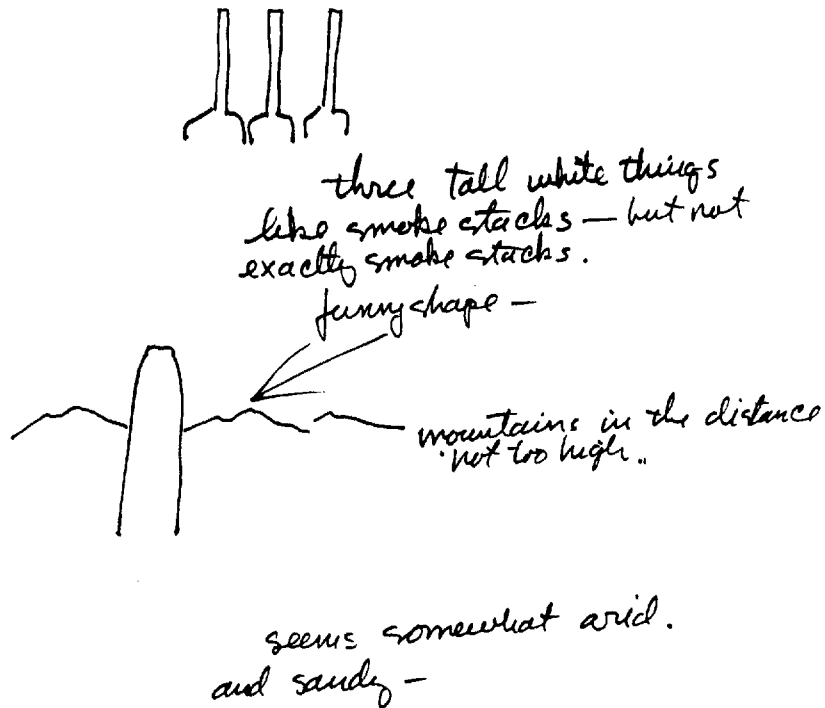 three tall white things
like smoke stacks — but not
exactly smoke stacks.
funny shape —
mountains in the distance
not too high..
seems somewhat arid.
and sandy —